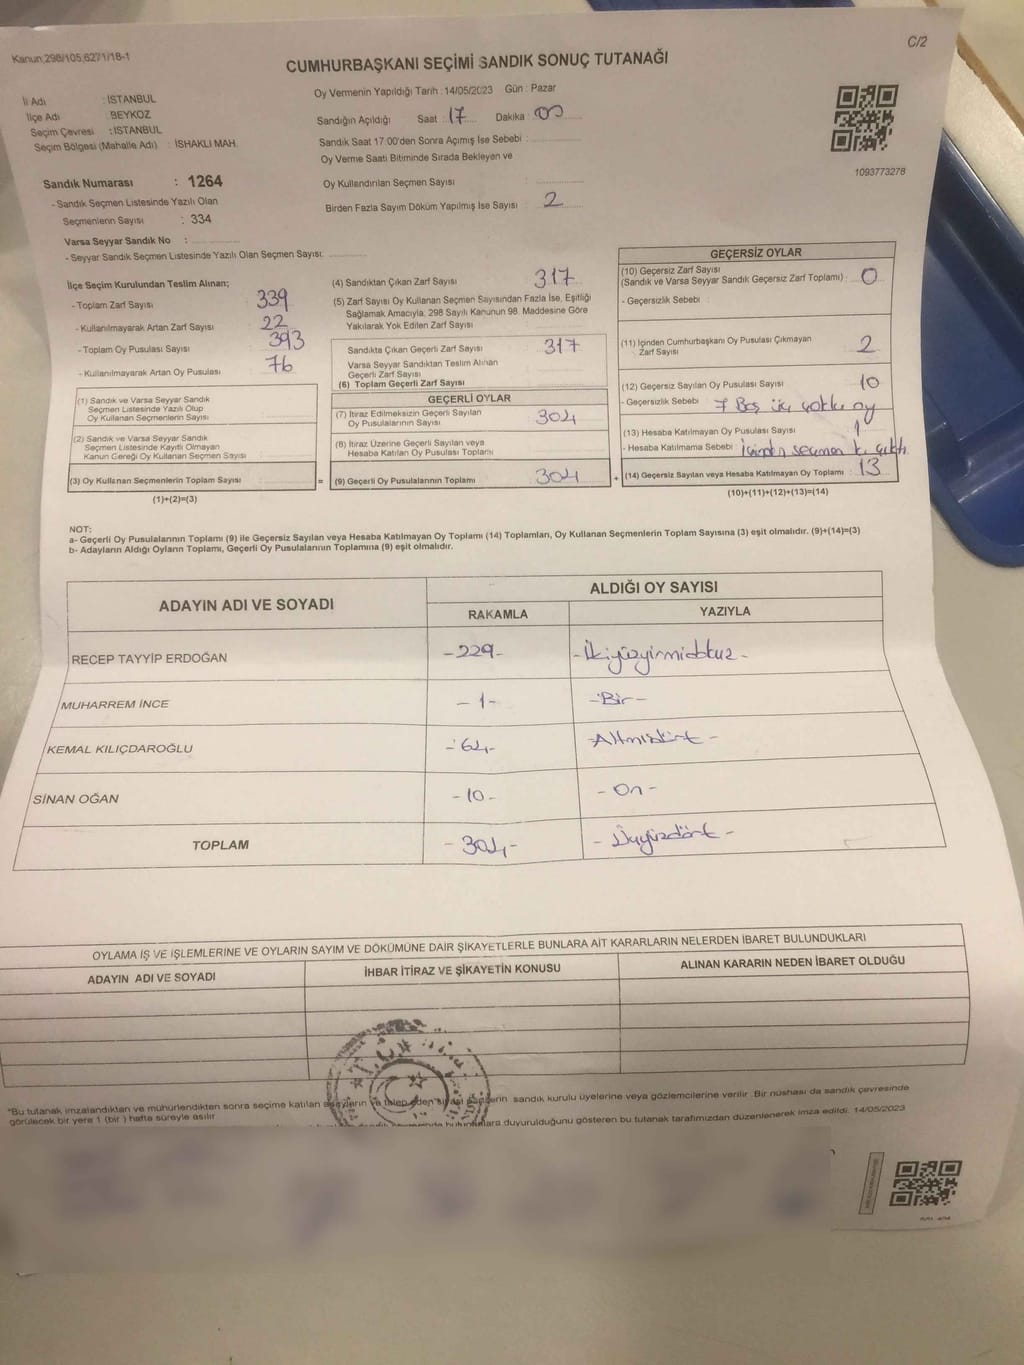 Kanun;298/105;6271/18-1
C/2
CUMHURBAŞKANI SEÇİMİ SANDIK SONUÇ TUTANAĞI
İl Adı : İSTANBUL
İlçe Adı BEYKOZ
Seçim Çevresi : İSTANBUL
Seçim Bölgesi (Mahalle Adı) : İSHAKLI MAH.
Sandık Numarası : 1264
- Sandık Seçmen Listesinde Yazılı Olan
Seçmenlerin Sayısı : 334
Varsa Seyyar Sandık No :
- Seyyar Sandık Seçmen Listesinde Yazılı Olan Seçmen Sayısı:
Oy Vermenin Yapıldığı Tarih : 14/05/2023 Gün : Pazar
Sandığın Açıldığı Saat : 17 Dakika : 00
Sandık Saat 17:00'den Sonra Açımış İse Sebebi :
Oy Verme Saati Bitiminde Sırada Bekleyen ve
Oy Kullandırılan Seçmen Sayısı :
Birden Fazla Sayım Döküm Yapılmış İse Sayısı : 2
1093773278
İlçe Seçim Kurulundan Teslim Alınan;
- Toplam Zarf Sayısı 339
- Kullanılmayarak Artan Zarf Sayısı 22
- Toplam Oy Pusulası Sayısı 393
- Kullanılmayarak Artan Oy Pusulası 76
(1) Sandık ve Varsa Seyyar Sandık
Seçmen Listesinde Yazılı Olup
Oy Kullanan Seçmenlerin Sayısı
(2) Sandık ve Varsa Seyyar Sandık
Seçmen Listesinde Kayıtlı Olmayan
Kanun Gereği Oy Kullanan Seçmen Sayısı
(3) Oy Kullanan Seçmenlerin Toplam Sayısı =
(1)+(2)=(3)
(4) Sandıktan Çıkan Zarf Sayısı 317
(5) Zarf Sayısı Oy Kullanan Seçmen Sayısından Fazla İse, Eşitliği
Sağlamak Amacıyla, 298 Sayılı Kanunun 98. Maddesine Göre
Yakılarak Yok Edilen Zarf Sayısı
Sandıkta Çıkan Geçerli Zarf Sayısı 317
Varsa Seyyar Sandıktan Teslim Alınan
Geçerli Zarf Sayısı
(6) Toplam Geçerli Zarf Sayısı
GEÇERLİ OYLAR
(7) İtiraz Edilmeksizin Geçerli Sayılan
Oy Pusulalarının Sayısı 304
(8) İtiraz Üzerine Geçerli Sayılan veya
Hesaba Katılan Oy Pusulası Toplamı
(9) Geçerli Oy Pusulalarının Toplamı 304 +
GEÇERSİZ OYLAR
(10) Geçersiz Zarf Sayısı
(Sandık ve Varsa Seyyar Sandık Geçersiz Zarf Toplamı) : 0
- Geçersizlik Sebebi :
(11) İçinden Cumhurbaşkanı Oy Pusulası Çıkmayan
Zarf Sayısı 2
(12) Geçersiz Sayılan Oy Pusulası Sayısı 10
- Geçersizlik Sebebi : 7 Boş üç çoklu oy
(13) Hesaba Katılmayan Oy Pusulası Sayısı 1
- Hesaba Katılmama Sebebi : İçinden seçmen k. çıktı
(14) Geçersiz Sayılan veya Hesaba Katılmayan Oy Toplamı : 13
(10)+(11)+(12)+(13)=(14)
NOT:
a- Geçerli Oy Pusulalarının Toplamı (9) ile Geçersiz Sayılan veya Hesaba Katılmayan Oy Toplamı (14) Toplamları, Oy Kullanan Seçmenlerin Toplam Sayısına (3) eşit olmalıdır. (9)+(14)=(3)
b- Adayların Aldığı Oyların Toplamı, Geçerli Oy Pusulalarının Toplamına (9) eşit olmalıdır.
ADAYIN ADI VE SOYADI
ALDIĞI OY SAYISI
RAKAMLA YAZIYLA
RECEP TAYYİP ERDOĞAN -229- -İkiyüzyirmidokuz-
MUHARREM İNCE -1- -Bir-
KEMAL KILIÇDAROĞLU -64- -Altmışdört-
SİNAN OĞAN -10- -On-
TOPLAM -304- -Üçyüzdört-
OYLAMA İŞ VE İŞLEMLERİNE VE OYLARIN SAYIM VE DÖKÜMÜNE DAİR ŞİKAYETLERLE BUNLARA AİT KARARLARIN NELERDEN İBARET BULUNDUKLARI
ADAYIN ADI VE SOYADI İHBAR İTİRAZ VE ŞİKAYETİN KONUSU ALINAN KARARIN NEDEN İBARET OLDUĞU
"Bu tutanak imzalandıktan ve mühürlendikten sonra seçime katılan adayların ve talep eden siyasi partilerin sandık kurulu üyelerine veya gözlemcilerine verilir. Bir nüshası da sandık çevresinde
görülecek bir yere 1 (bir) hafta süreyle asılır.
duyurulduğunu gösteren bu tutanak tarafımızdan düzenlenerek imza edildi. 14/05/2023